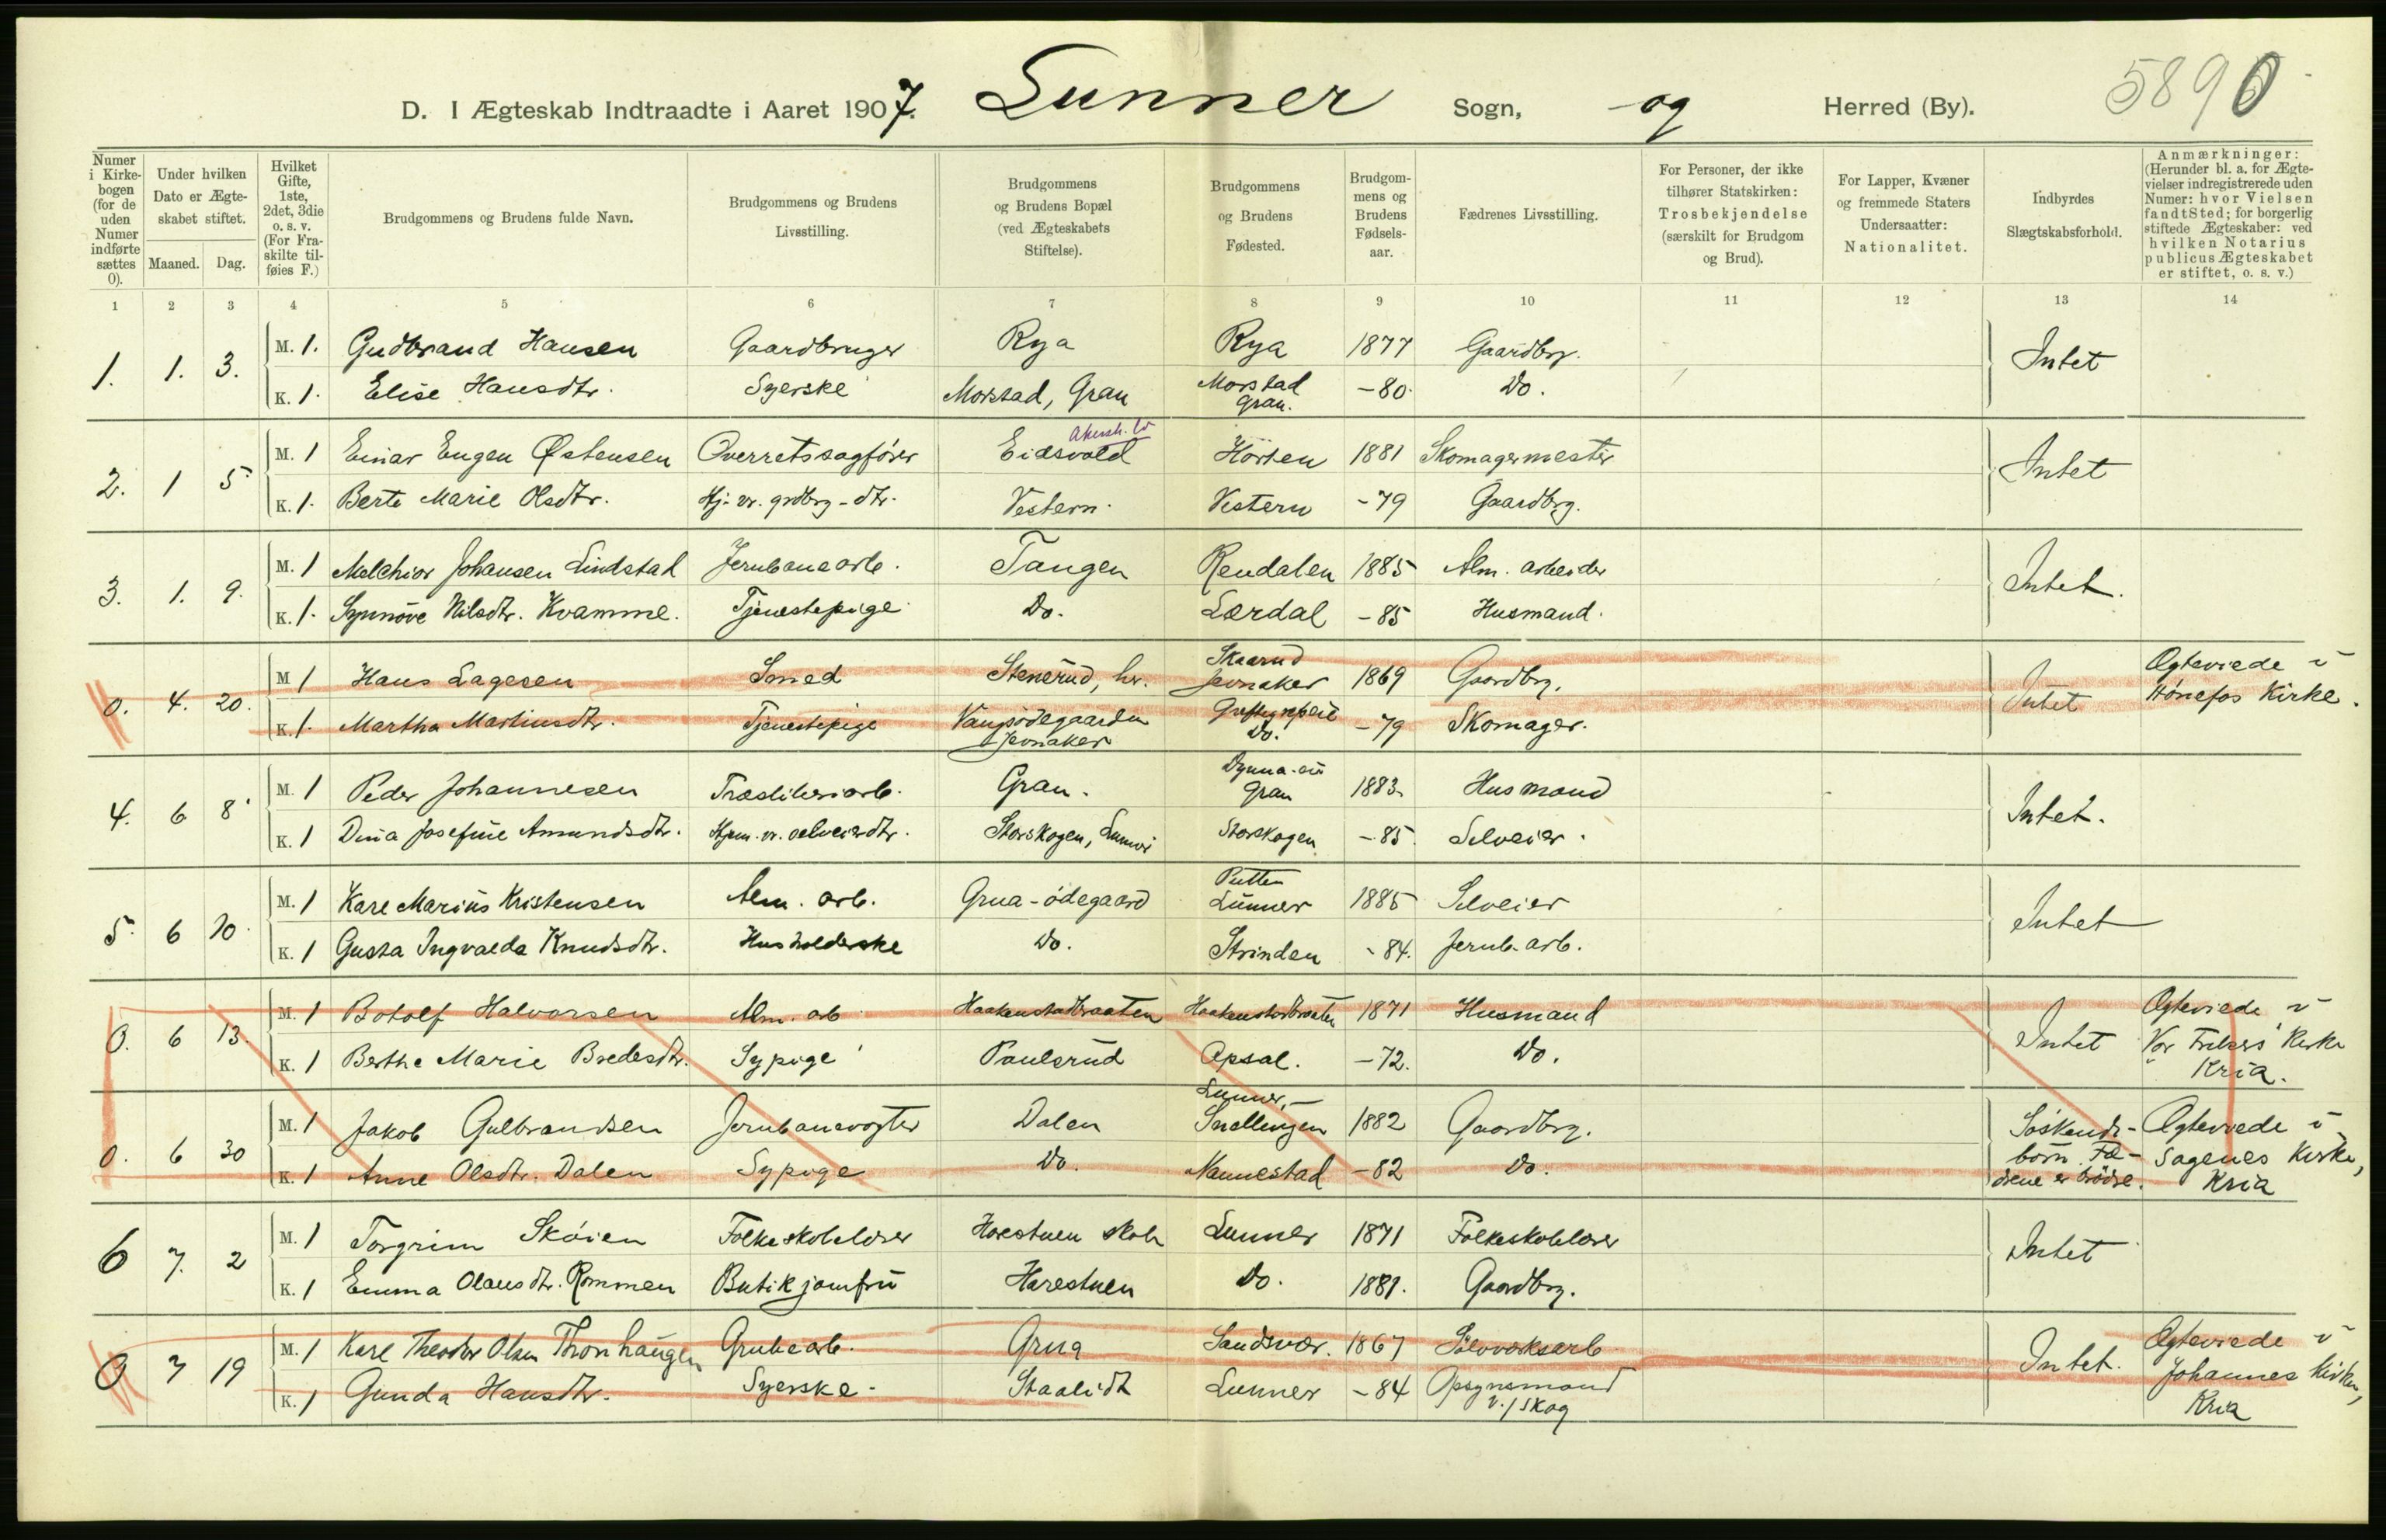 5890
D. I Ægteskab Indtraadte i Aaret 1907. Lunner Sogn, og Herred (By).
Numer i Kirkebogen (for de uden Numer indførte sættes 0).
Under hvilken Dato er Ægteskabet stiftet.
Maaned. Dag.
Hvilket Gifte, 1ste, 2det, 3die o. s. v. (For Fraskilte tilføies F.)
Brudgommens og Brudens fulde Navn.
Brudgommens og Brudens Livsstilling.
Brudgommens og Brudens Bopæl (ved Ægteskabets Stiftelse).
Brudgommens og Brudens Fødested.
Brudgommens og Brudens Fødselsaar.
Fædrenes Livsstilling.
For Personer, der ikke tilhører Statskirken: Trosbekjendelse (særskilt for Brudgom og Brud).
For Lapper, Kvæner og fremmede Staters Undersaatter: Nationalitet.
Indbyrdes Slægtskabsforhold.
Anmærkninger: (Herunder bl. a. for Ægtevielser indregistrerede uden Numer: hvor Vielsen fandt Sted; for borgerlig stiftede Ægteskaber: ved hvilken Notarius publicus Ægteskabet er stiftet, o. s. v.)
1 2 3 4 5 6 7 8 9 10 11 12 13 14
1. 1. 3. M. 1. Gudbrand Hansen Gaardbruger Rya Rya 1877 Gaardbrg. Intet
K. 1. Elise Hansdtr. Syerske Morstad, Gran Morstad Gran. -80. Do.
2. 1 5 M. 1 Einar Eugen Østensen Overretssagfører Eidsvold Akersh. Horten 1881 Skomagermester Intet
K. 1. Berte Marie Olsdtr. Hj. vr. grdbrg-dtr. Vestern. Vestern -79 Gaardbrg.
3. 1. 9. M. 1 Melchior Johansen Lindstad Jernbanearb. Tangen Rendalen 1885 Alm. arbeider Intet.
K. 1. Synnöve Nilsdtr. Kvamme. Tjenestepige Do. Lærdal -85 Husmand.
0. 4. 20. M 1 Hans Lagesen Smed Stenerud, hr. Skaarud Jevnaker 1869 Gaardbrg. Intet Ægteviede i Hönefos Kirke.
K. 1. Martha Martinsdtr. Tjenestepige Vangsödegaarden Jevnaker Do. -79 Skomager.
4. 6 8 M. 1 Peder Johannesen Træsliberiarb. Gran. Dynna-eie Gran 1883. Husmand Intet.
K. 1 Dina Josefine Amundsdtr. Hjem. vr. selveierdtr. Storskogen, Lunner Storskogen -85. Selveier.
5. 6 10 M. 1 Karl Marius Kristensen Alm. arb. Grua-ödegaard Putten Lunner 1885 Selveier Intet
K. 1 Gusta Ingvalda Knudsdtr. Husholderske Do. Strinden -84. Jernb. arb.
0. 6 13. M. 1 Botolf Halvorsen Alm. arb Haakenstadbraaten Haakenstadbraaten 1871 Husmand Intet Ægteviede i Vor Frelsers Kirke Kria.
K. 1 Berthe Marie Bredesdtr. Sypige Paulsrud Opsal. -72. Do.
0. 6 30 M. 1 Jakob Gulbrandsen Jernbanevogter Dalen Lunner, Snellingen 1882 Gaardbrg. Söskende- börn. Fæ- drene er brödre. Ægteviede i Sagenes Kirke, Kria
K. 1 Anne Olsdtr. Dalen Sypige Do. Nannestad -82 Do.
6 7. 2 M. 1 Torgrim Sköien Folkeskolelærer Harestuen skole Lunner 1871 Folkeskolelærer Intet
K. 1 Emma Olausdtr. Rommen Butikjomfru Harestuen Do. 1881. Gaardbrg.
0 7 19 M. 1 Karl Theodor Olsen Thorshaugen Grubearb. Grua Sandsvær. 1867 Sölvverksarb Intet. Ægteviede i Johannes Kirke, Kria
K. 1 Gunda Hansdtr. Syerske. Staalidt Lunner -84 Opsynsmand v./skog